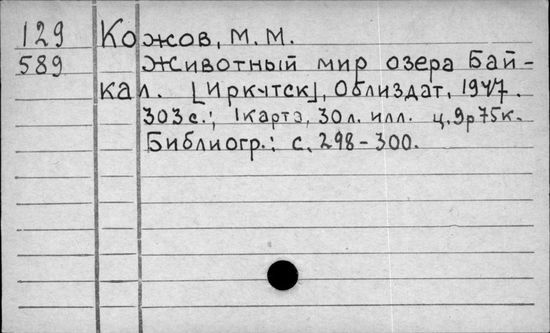 129 Кожов, М. М.
589 Животный мир озера Бай-
кал. [Иркутск], Облиздат, 1947.
303 с.; 1 карта, 30 л. илл. ц. 9р 75к.
Библиогр.: с. 298-300.